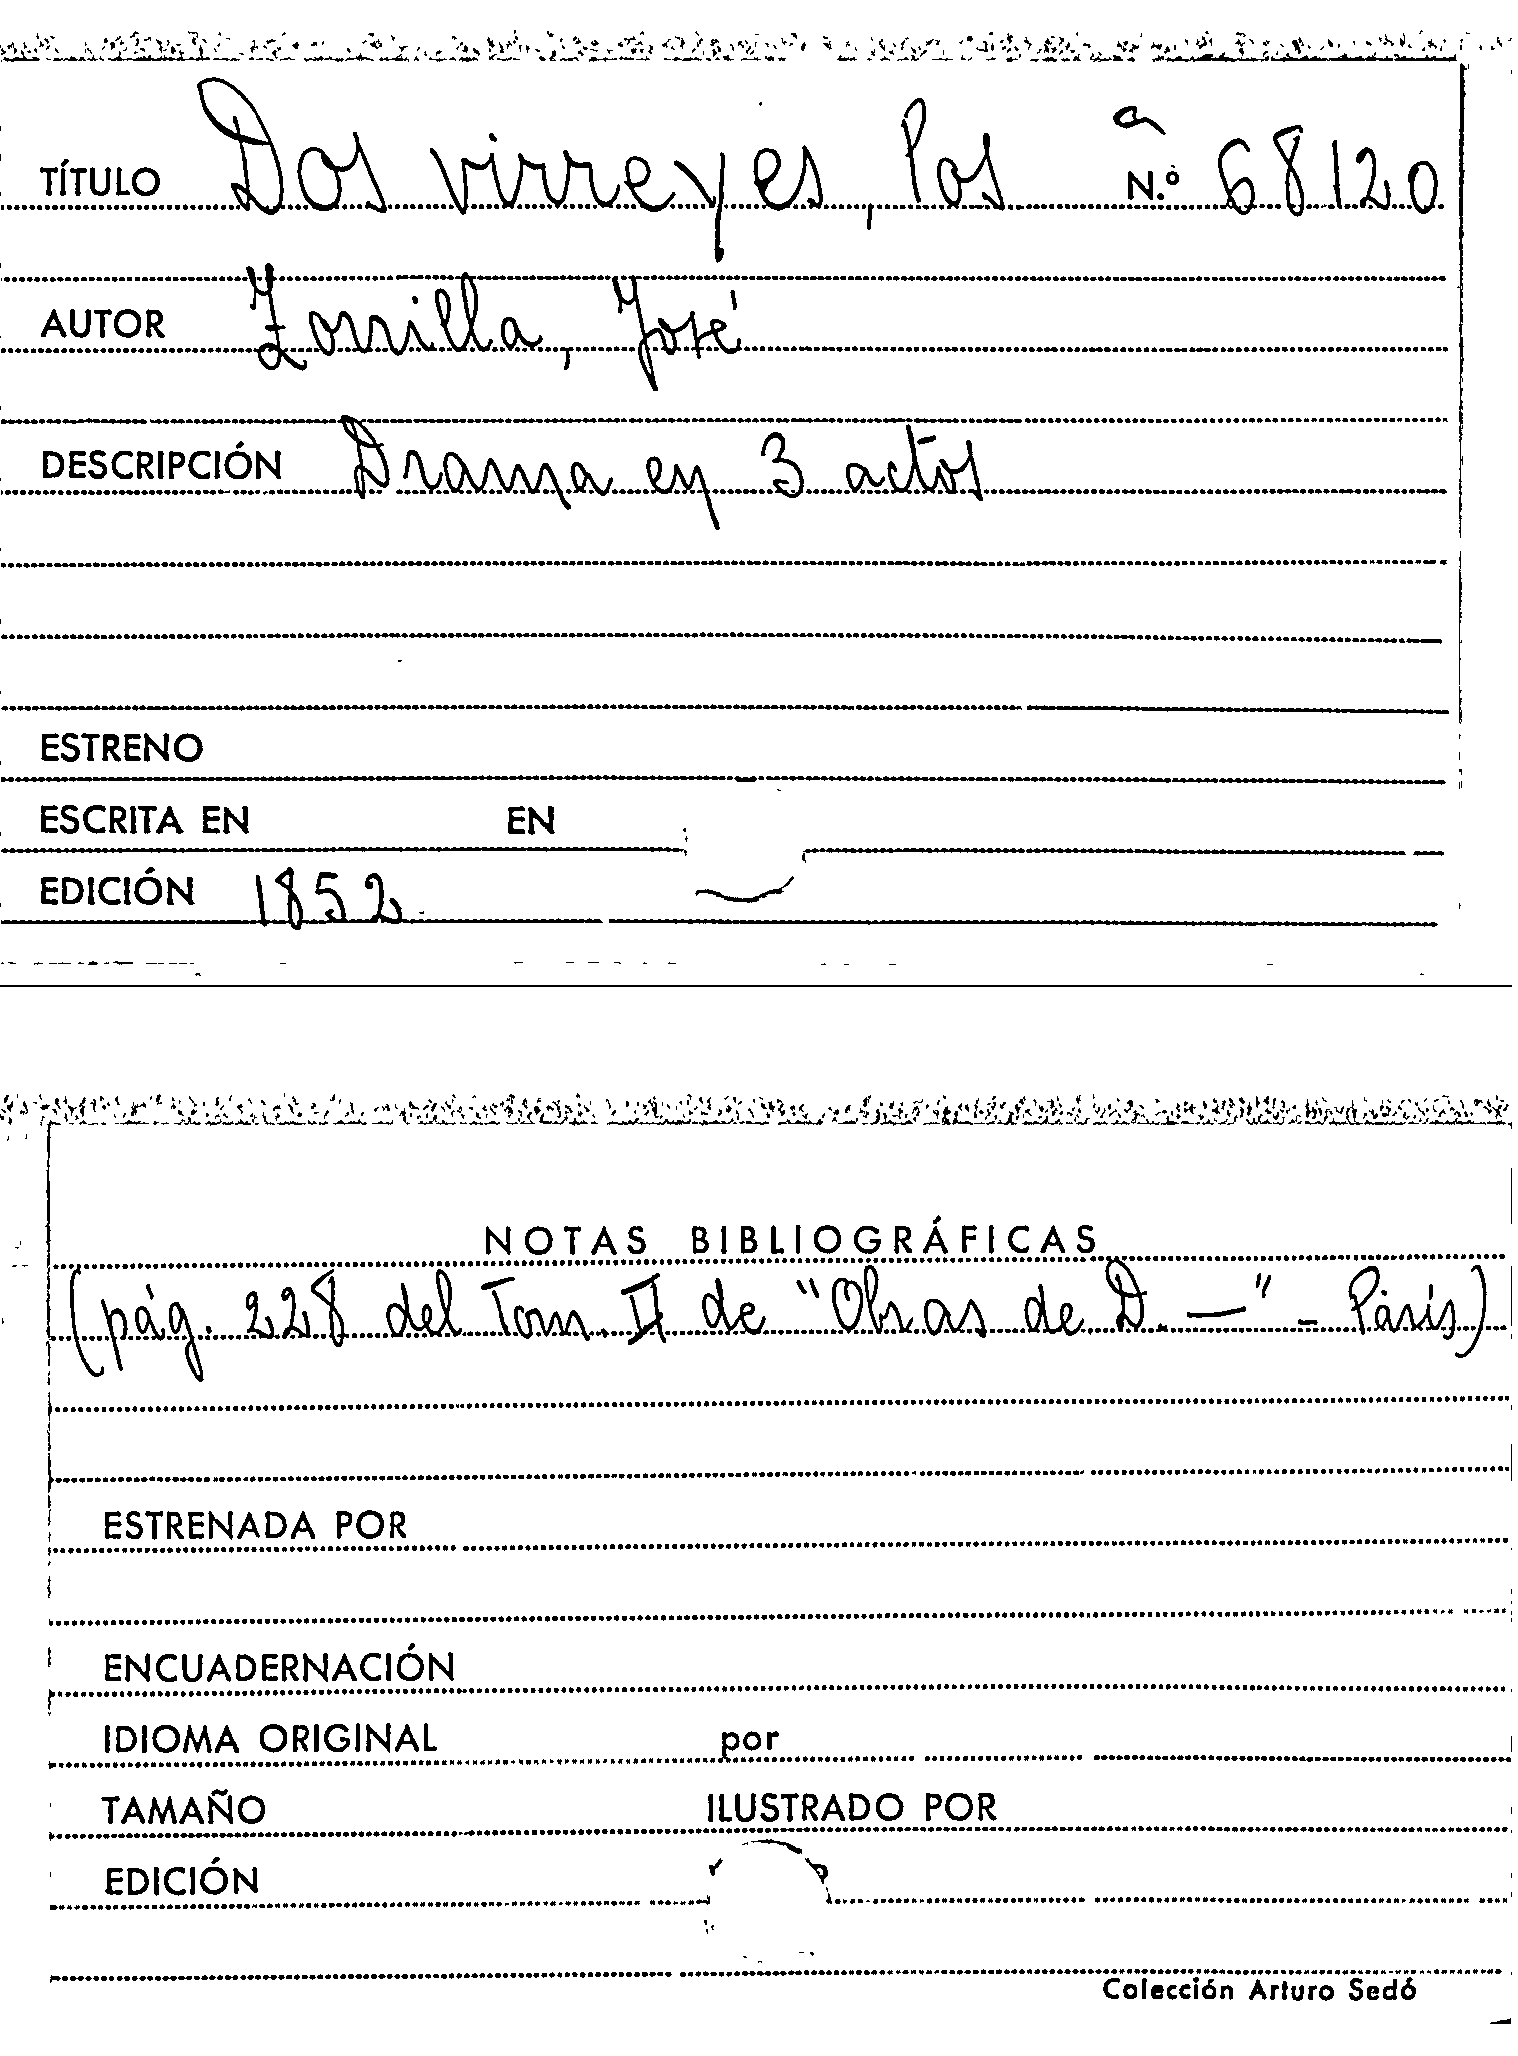 TÍTULO Dos virreyes, Los a N.º 68120
AUTOR Zorrilla, José
DESCRIPCIÓN Drama en 3 actos
ESTRENO
ESCRITA EN EN
EDICIÓN 1852
NOTAS BIBLIOGRÁFICAS
(pág. 228 del Tom. II de "Obras de D. —" - París)
ESTRENADA POR
ENCUADERNACIÓN
IDIOMA ORIGINAL por
TAMAÑO ILUSTRADO POR
EDICIÓN
Colección Arturo Sedó